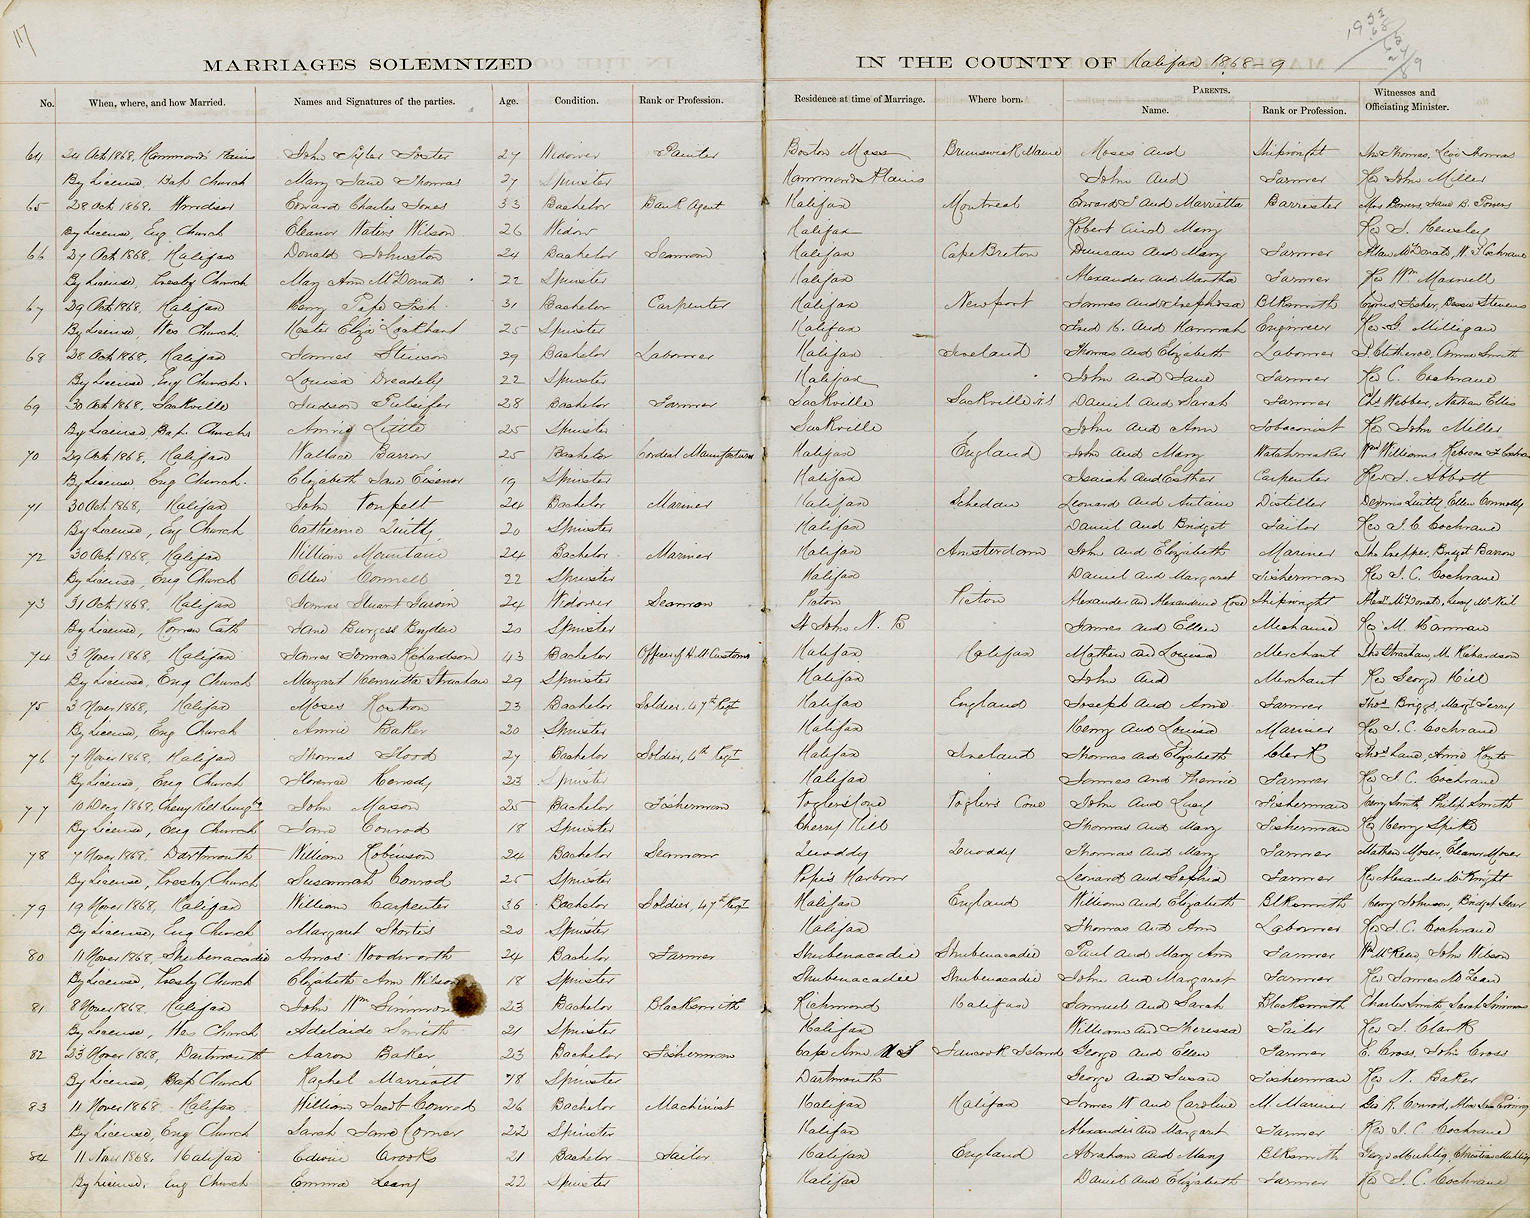 117
MARRIAGES SOLEMNIZED IN THE COUNTY OF Halifax 1868-9
No. When, where, and how Married. Names and Signatures of the parties. Age. Condition. Rank or Profession. Residence at time of Marriage. Where born. PARENTS. Name. Rank or Profession. Witnesses and Officiating Minister.
64 24 Oct 1868, Hammonds Plains John Tyler Foster 27 Widower Painter Boston Mass Brunswick Maine Moses and Shipwright Thos Thomas, Levi Thomas
By License, Bap Church Mary Jane Thomas 27 Spinster Hammonds Plains John and Farmer Rev John Miller
65 28 Oct 1868, Windsor Edward Charles Jones 33 Bachelor Bank Agent Halifax Montreal Edward and Marrietta Barrister Jane B. Powers
By License, Eng Church Eleanor Waters Wilson 26 Widow Halifax Robert and Mary Rev
66 27 Oct 1868, Halifax Donald Johnston 24 Bachelor Seaman Halifax Cape Breton Duncan and Mary Farmer Allan McDonald, W. Cochrane
By License, Presby Church Mary Ann McDonald 22 Spinster Halifax Alexander and Martha Farmer Rev Wm Maxwell
67 29 Oct 1868, Halifax Henry Pope Fish 31 Bachelor Carpenter Halifax Newport James and Josephina Blksmith Fisher, Bessie Stevens
By License, Wes Church. Hester Eliza Lockhard 25 Spinster Halifax and Hannah Engineer Rev G. Milligan
68 28 Oct 1868, Halifax James Stinson 29 Bachelor Labourer Halifax Ireland Thomas and Elizabeth Labourer Annie Smith
By License, Eng Church. Louisa 22 Spinster Halifax John and Jane Farmer Rev C. Cochrane
69 30 Oct 1868, Sackville Judson Pulsifer 28 Bachelor Farmer Sackville Sackville N.S Daniel and Sarah Farmer Chs Webber, Nathan Ellis
By License, Bap. Church Annie Little 25 Spinster Sackville John and Ann Tobacconist Rev John Miller
70 29 Oct 1868, Halifax Wallace Barron 25 Bachelor Cordial Manufacturer Halifax England John and Mary Watchmaker Wm Williams Rebecca
By License, Eng Church. Elizabeth Jane Eisenor 19 Spinster Halifax Isaiah and Esther Carpenter Rev J. Abbott
71 30 Oct 1868, Halifax John 24 Bachelor Mariner Halifax Schedam Leonard and Distiller Dennis Quilty Ellen Connolly
By License, Eng Church Catherine Quilty 20 Spinster Halifax Daniel and Bridget Tailor Rev J. C Cochrane
72 30 Oct 1868, Halifax William Mountain 24 Bachelor Mariner Halifax Amsterdam John and Elizabeth Mariner Bridget Barron
By License, Eng Church Ellen Connell 22 Spinster Halifax Daniel and Margaret Fisherman Rev J. C. Cochrane
73 31 Oct 1868. Halifax James Stuart 24 Widower Seaman Picton Picton Alexander and Alexandrina Rose Shipwright Alexr McDonald, Lucy McNeil
By License, Roman Cath Jane Burgess Bryden 20 Spinster St John N. B James and Ellen Mechanic Rev M. Hannan
74 3 Nover 1868, Halifax James Richardson 43 Bachelor Officer of H. M Customs Halifax Halifax Mathew and Louisa Merchant Jno Strachan, M. Richardson
By License, Eng Church Margaret Henrietta Strachan 29 Spinster Halifax John and Merchant Rev George Hill
75 3 Nover 1868, Halifax Moses 23 Bachelor Soldier, 47th Regt Halifax England Joseph and Ann Farmer Thos Briggs, Margt Terry
By License, Eng Church Annie Baker 20 Spinster Halifax Henry and Louisa Mariner Rev J. C. Cochrane
76 7 Nover 1868, Halifax Thomas Flood 27 Bachelor Soldier, 4th Regt Halifax Ireland Thomas and Elizabeth Clerk Thos Lane, Anne
By License, Eng Church Florence Kennedy 23 Spinster Halifax James and Farmer Rev J. C. Cochrane
77 10 Dec 1868, Cherry Hill John Mason 25 Bachelor Fisherman Cove John and Lucy Fisherman Henry Smith, Philip Smith
By License, Eng Church Jane Conrod 18 Spinster Cherry Hill Thomas and Mary Fisherman Rev Henry Spike
78 7 Nover 1868. Dartmouth William Robinson 24 Bachelor Seaman Quoddy Quoddy Thomas and Mary Farmer Mathew Moser, Eleanor Moser
By License, Presby Church Susannah Conrod 25 Spinster Popes Harbour Leonard and Sophia Farmer Rev Alexander McKnight
79 19 Nover 1868, Halifax William Carpenter 36 Bachelor Soldier, 47th Regt Halifax England William and Elizabeth Blksmith Henry Johnson, Bridget
By License, Eng Church Margaret Shortis 20 Spinster Halifax Thomas and Ann Labourer Rev J. C. Cochrane
80 11 Nover 1868, Shubenacadie Amos Woodworth 24 Bachelor Farmer Shubenacadie Shubenacadie Paul and Mary Ann Farmer Wm McKean, John Wilson
By License, Presby Church Elizabeth Ann Wilson 18 Spinster Shubenacadie Shubenacadie John and Margaret Farmer Rev James McLean
81 8 Nover 1868. Halifax John Wm Simmons 23 Bachelor Blacksmith Richmond Halifax Samuel and Sarah Blacksmith Charles Smith, Sarah Simmons
By License, Wes Church Adelaide Smith 21 Spinster Halifax William and Theressa Tailor Rev J. Clark
82 23 Nover 1868, Dartmouth Aaron Baker 23 Bachelor Fisherman Cape Ann U S Tancook Island George and Ellen Farmer E. Cross. John Cross
By License, Bap Church Rachel Marriott 18 Spinster Dartmouth George and Susan Fisherman Rev N. Baker
83 11 Nover 1868 Halifax William Jacob Conrod 26 Bachelor Machinist Halifax Halifax James W and Caroline M. Mariner Geo R. Conrod,
By License, Eng Church Sarah Jane Corner 22 Spinster Halifax Alexander and Margaret Farmer Rev J. C. Cochrane
84 11 Nover 1868. Halifax Edwin Crooks 21 Bachelor Tailor Halifax England Abraham and Mary Blksmith George
By License. Eng Church Emma Leary 22 Spinster Halifax Daniel and Elizabeth Farmer Rev J. C. Cochrane